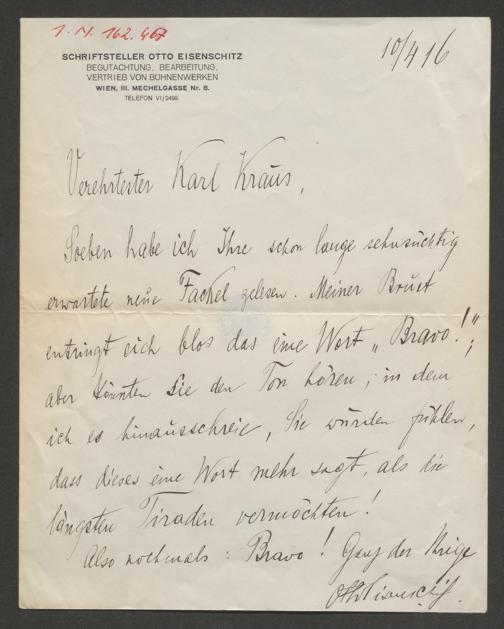 I.N. 162.467
SCHRIFTSTELLER OTTO EISENSCHITZ
BEGUTACHTUNG, BEARBEITUNG,
VERTRIEB VON BÜHNENWERKEN
WIEN, III. MECHELGASSE Nr. 8.
TELEFON VI/2499.
10/4 16
Verehrtester Karl Kraus,
Soeben habe ich Ihre schon lange sehnsüchtig
erwartete neue Fackel gelesen. Meiner Brust
entringt sich blos das eine Wort „Bravo!";
aber könnten Sie den Ton hören, in dem
ich es hinausschreie, Sie würden fühlen,
dass dieses eine Wort mehr sagt, als die
längsten Tiraden vermöchten!
Also nochmals: Bravo! Ganz der Ihrige
Otto Eisenschitz.